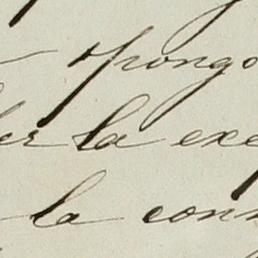 pongo
er la exe
la con